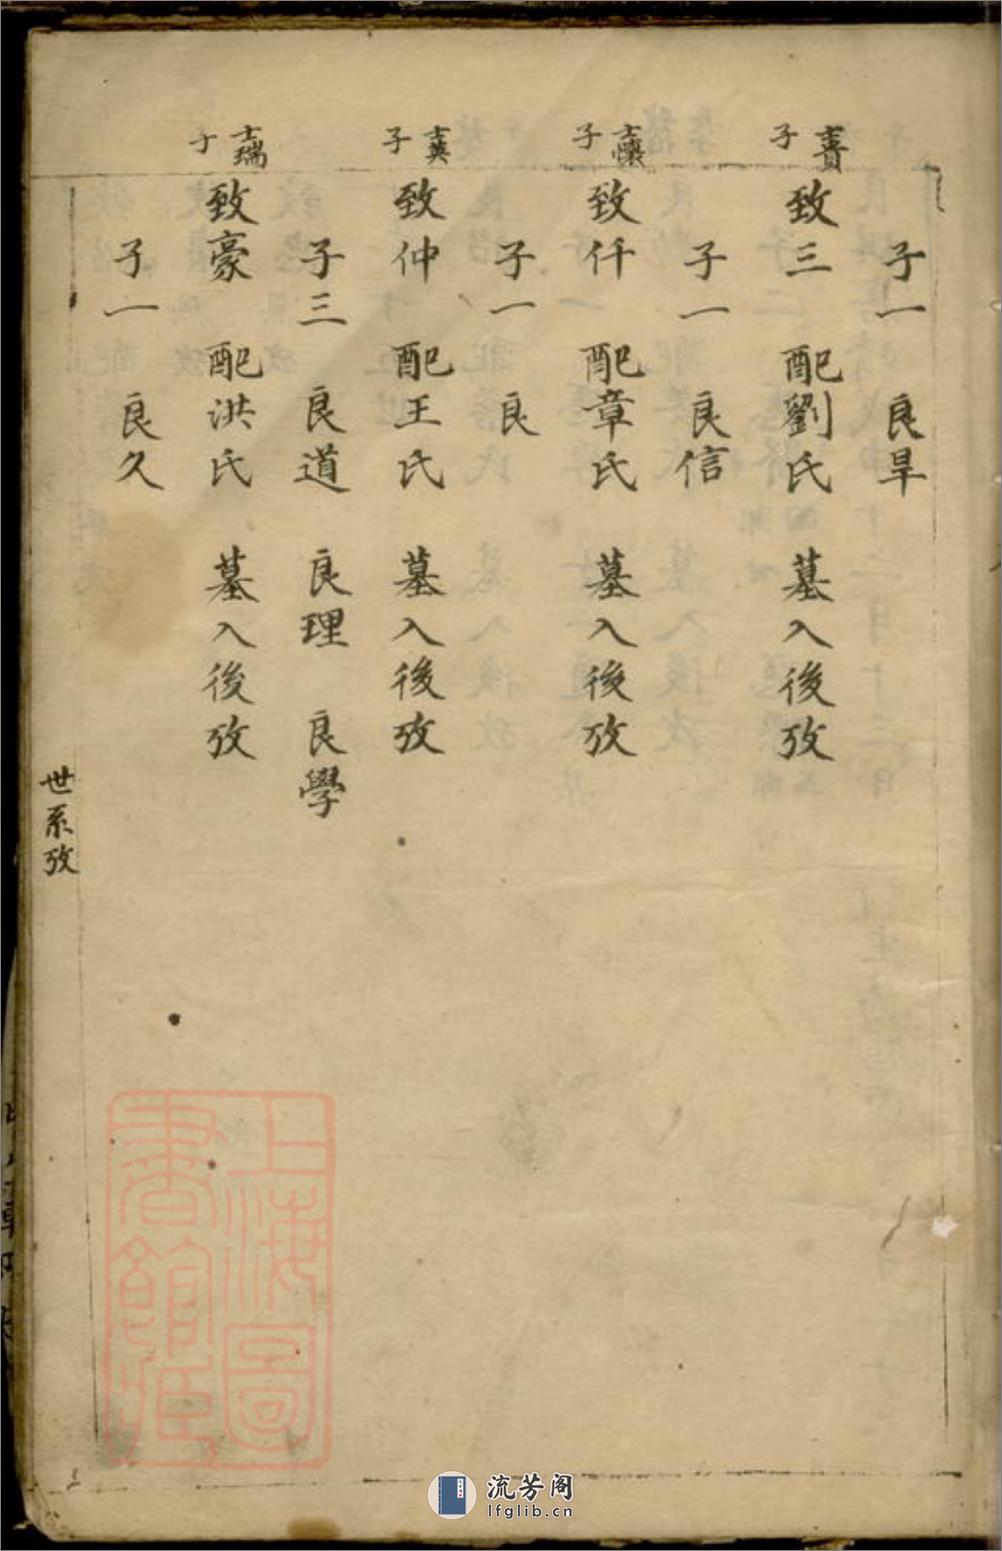 子一 良旱
士貴子
致三 配劉氏 墓入後攷
子一 良信
士懷子
致仟 配章氏 墓入後攷
子一 良
士英子
致仲 配王氏 墓入後攷
子三 良道 良理 良學
士瑞子
致豪 配洪氏 墓入後攷
子一 良久
世系攷
上海圖書館藏
流芳阁
lfglib.cn